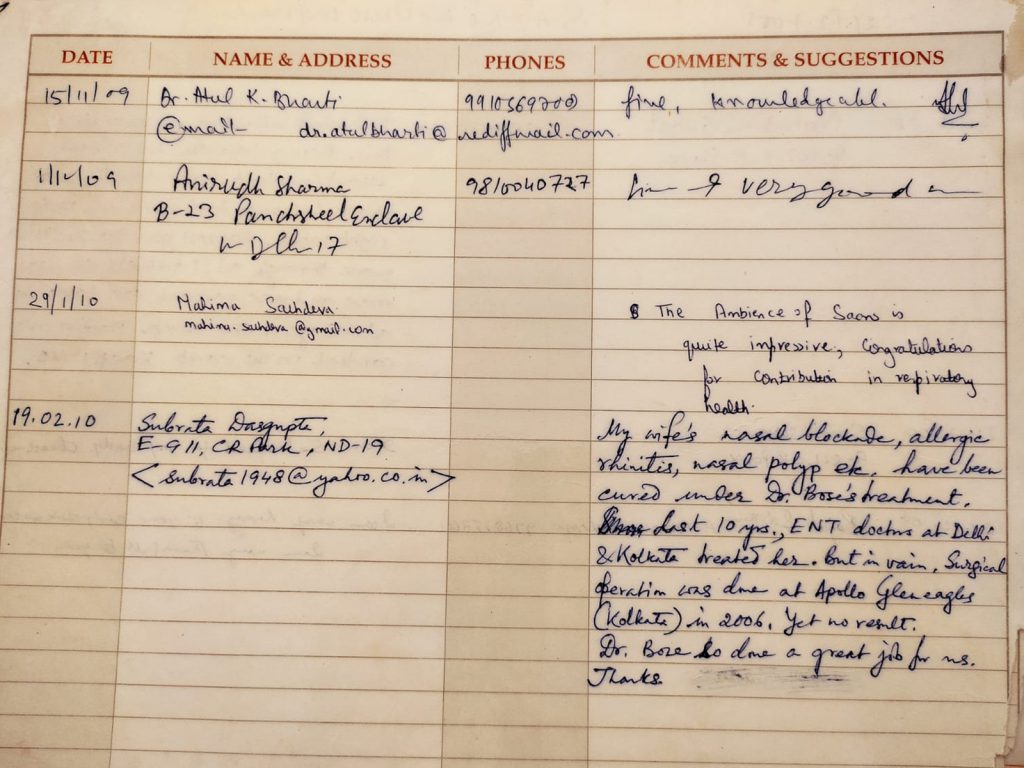 DATE NAME & ADDRESS PHONES COMMENTS & SUGGESTIONS
15/11/09 Dr. Atul K. Bharti 9910569700 fine, knowledgeabl.
email dr.atulbharti@rediffmail.com
1/12/09 Anirudh Sharma 9810040727 very good
B-23 Panchsheel Enclave
17
29/1/10 Mahima Sachdeva The Ambience of Saans is
mahima.sachdeva@gmail.com
quite impressive, Congratulations
for contribution in respiratory
health.
19.02.10 Subrata Dasgupta,
E-911, CR Park, ND-19
<subrata1948@yahoo.co.in>
My wife's nasal blockade, allergic
rhinitis, nasal polyp etc. have been
cured under Dr. Bose's treatment.
Last 10 yrs., ENT doctors at Delhi
& Kolkata treated her. But in vain, Surgical
operation was done at Apollo Gleneagles
(Kolkata) in 2006. Yet no result.
Dr. Bose done a great job for us.
Thanks.